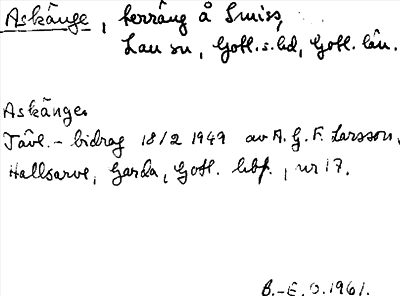 Askänge, terräng å Smiss,
Lau sn, Gotl. s. hd, Gotl. län.
Askänge.
Tävl.-bidrag 18/2 1949 av A. G. F. Larsson,
Hallsarve, Garda, Gotl. hbf., nr 17.
B.-E. O. 1961.